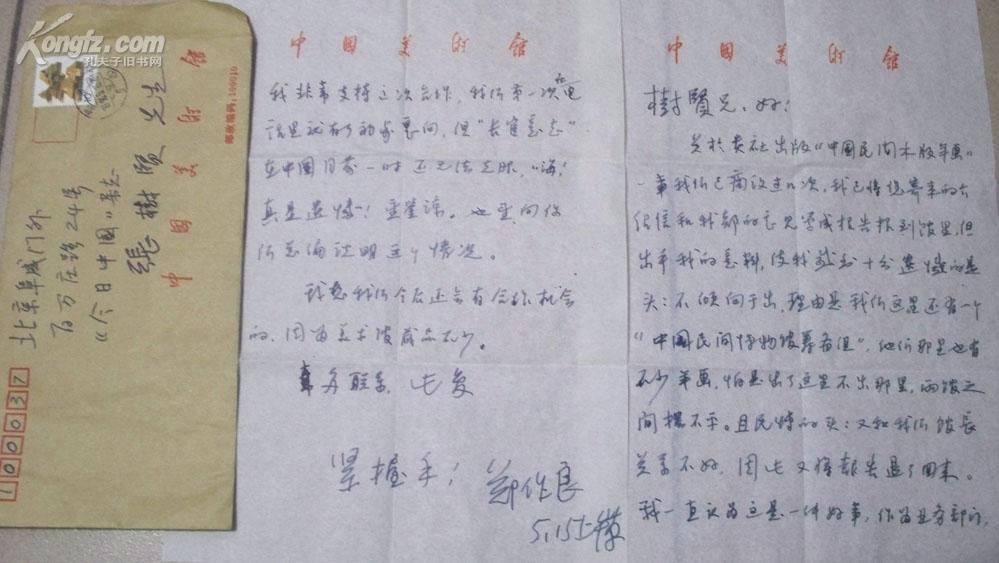 Kongfz.com
孔夫子旧书网
北京阜成门外
百万庄路24号
《今日中国》杂志
張樹賢 先生
中国美術館
邮政编码:100010
100037
中国美術館
樹賢兄:好!
关於贵社出版《中国民间木版年画》
一事我们已商议过几次,我已将您寄来的
信和我部的意见写成报告报到馆里,但
出乎我的意料,使我感到十分遗憾的是
头:不倾向于出,理由是我们这里还有一个
"中国民间博物馆筹备组",他们那里也有
不少年画,怕是出了这里不出那里,两馆之
间摆不平。且民博的头:又和我们馆长
关系不好,因此又将报告退了回来。
我一直认为这是一件好事,作为业务部门,
中国美術館
我非常支持这次合作,我们第一次在电
话里就有了初步意向,但"长官意志"
在中国目前一时还无法克服,"嗨!
真是遗憾!望鉴谅。也望向你
们总编说明这个情况。
我想我们今后还会有合作机会
的,因为美术馆藏品不少。
多联系,此复
紧握手!
郑作良
5.15上